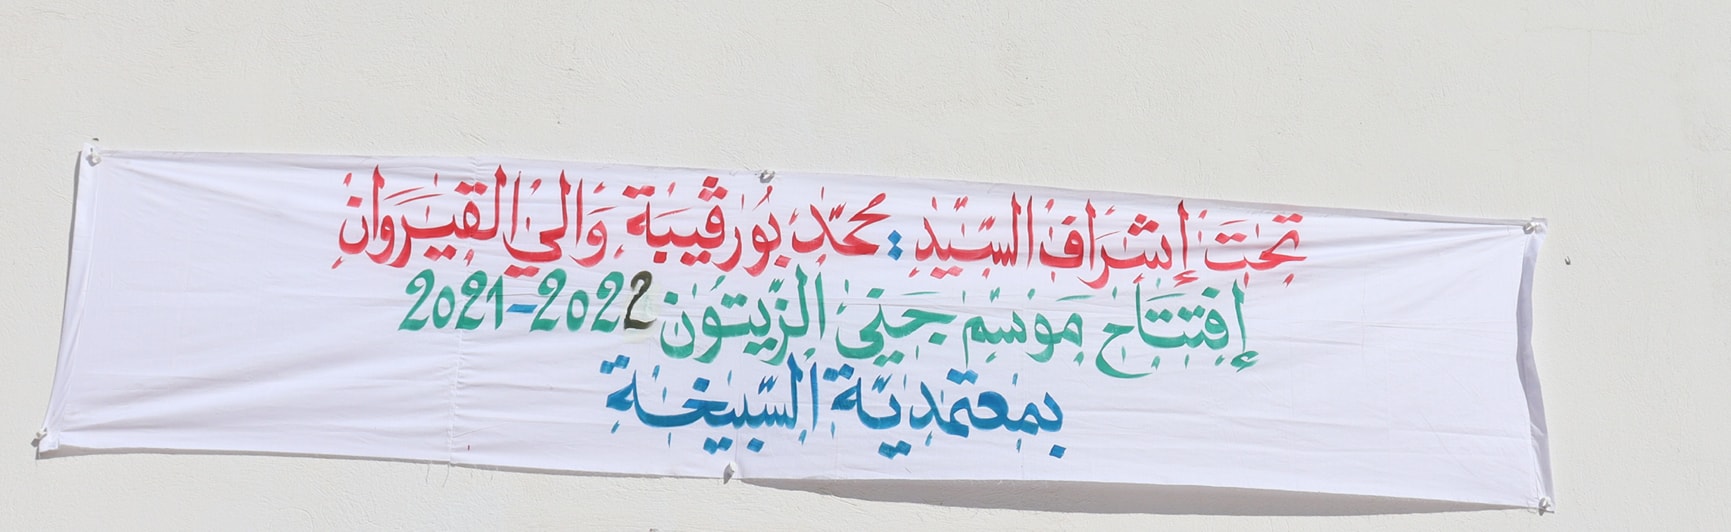 تحت إشراف السيد : محمد بورڤيبة والي القيروان
إفتتاح موسم جني الزيتون 2022-2021
بمعتمدية السبيخة